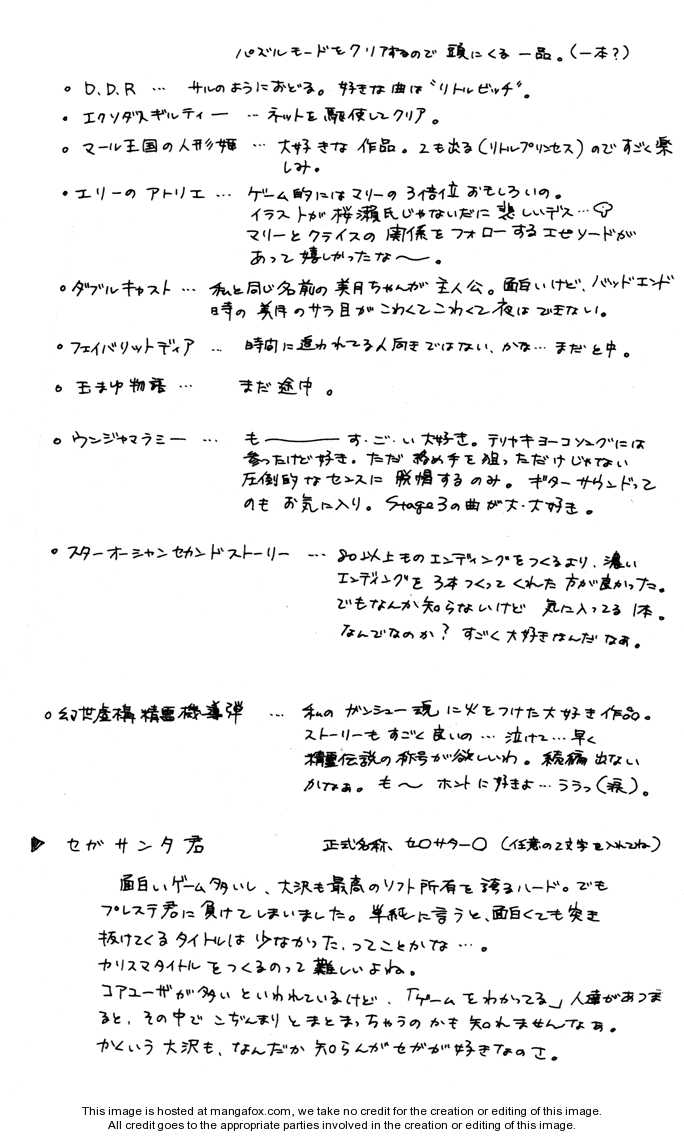 パズルモードをクリアするので頭にくる一品。(一本?)
• D.D.R … サルのようにおどる。好きな曲は"リトルビッチ"。
• エクソダスギルティー … ネットを駆使してクリア。
○ マール王国の人形姫 … 大好きな作品。2も出る(リトルプリンセス)のですごく楽
しみ。
• エリーのアトリエ … ゲーム的にはマリーの3倍位おもしろいの。
イラストが桜瀬氏じゃないだに悲しいデス…
マリーとクライスの関係をフォローするエピソードが
あって嬉しかったな〜。
○ ダブルキャスト … 私と同じ名前の美月ちゃんが主人公。面白いけど、バッドエンド
時の美月のサラ目がこわくてこわくて夜はできない。
○ フェイバリットディア … 時間に追われてる人向きではない、かな… まだと中。
○ 玉まゆ物語 … まだ途中。
○ ウンジャマラミー … も────す・ご・い大好き。テリヤキヨーコソングには
参ったけど好き。ただ 手を狙っただけじゃない
圧倒的なセンスに脱帽するのみ。ギターサウンドって
のもお気に入り。Stage3の曲が大・大好き。
○ スターオーシャンセカンドストーリー … 80以上ものエンディングをつくるより、濃い
エンディングを3本つくってくれた方が良かった。
でもなんか知らないけど 気に入ってる1本。
なんでなのか? すごく大好きなんだなぁ。
○ 幻世虚構精霊機導弾 … 私のガンシュー魂に火をつけた大好き作品。
ストーリーもすごく良いの… 泣けて… 早く
精霊伝説の称号が欲しいわ。続編出ない
かなぁ。も〜 ホントに好きよ… ううっ(涙)。
▶ セガサンタ君 正式名称、セ○サター○ (任意の2文字を入れてね)
面白いゲーム多いし、大沢も最高のソフト所有を誇るハード。でも
プレステ君に負けてしまいました。単純に言うと、面白くても突き
抜けてくるタイトルは少なかった、ってことかな…。
カリスマタイトルをつくるのって難しいよね。
コアユーザが多いといわれているけど、「ゲームをわかってる」人達があつま
ると、その中でこぢんまりとまとまっちゃうのかも知れませんなぁ。
かくいう大沢も、なんだか知らんがセガが好きなのさ。
This image is hosted at mangafox.com, we take no credit for the creation or editing of this image.
All credit goes to the appropriate parties involved in the creation or editing of this image.